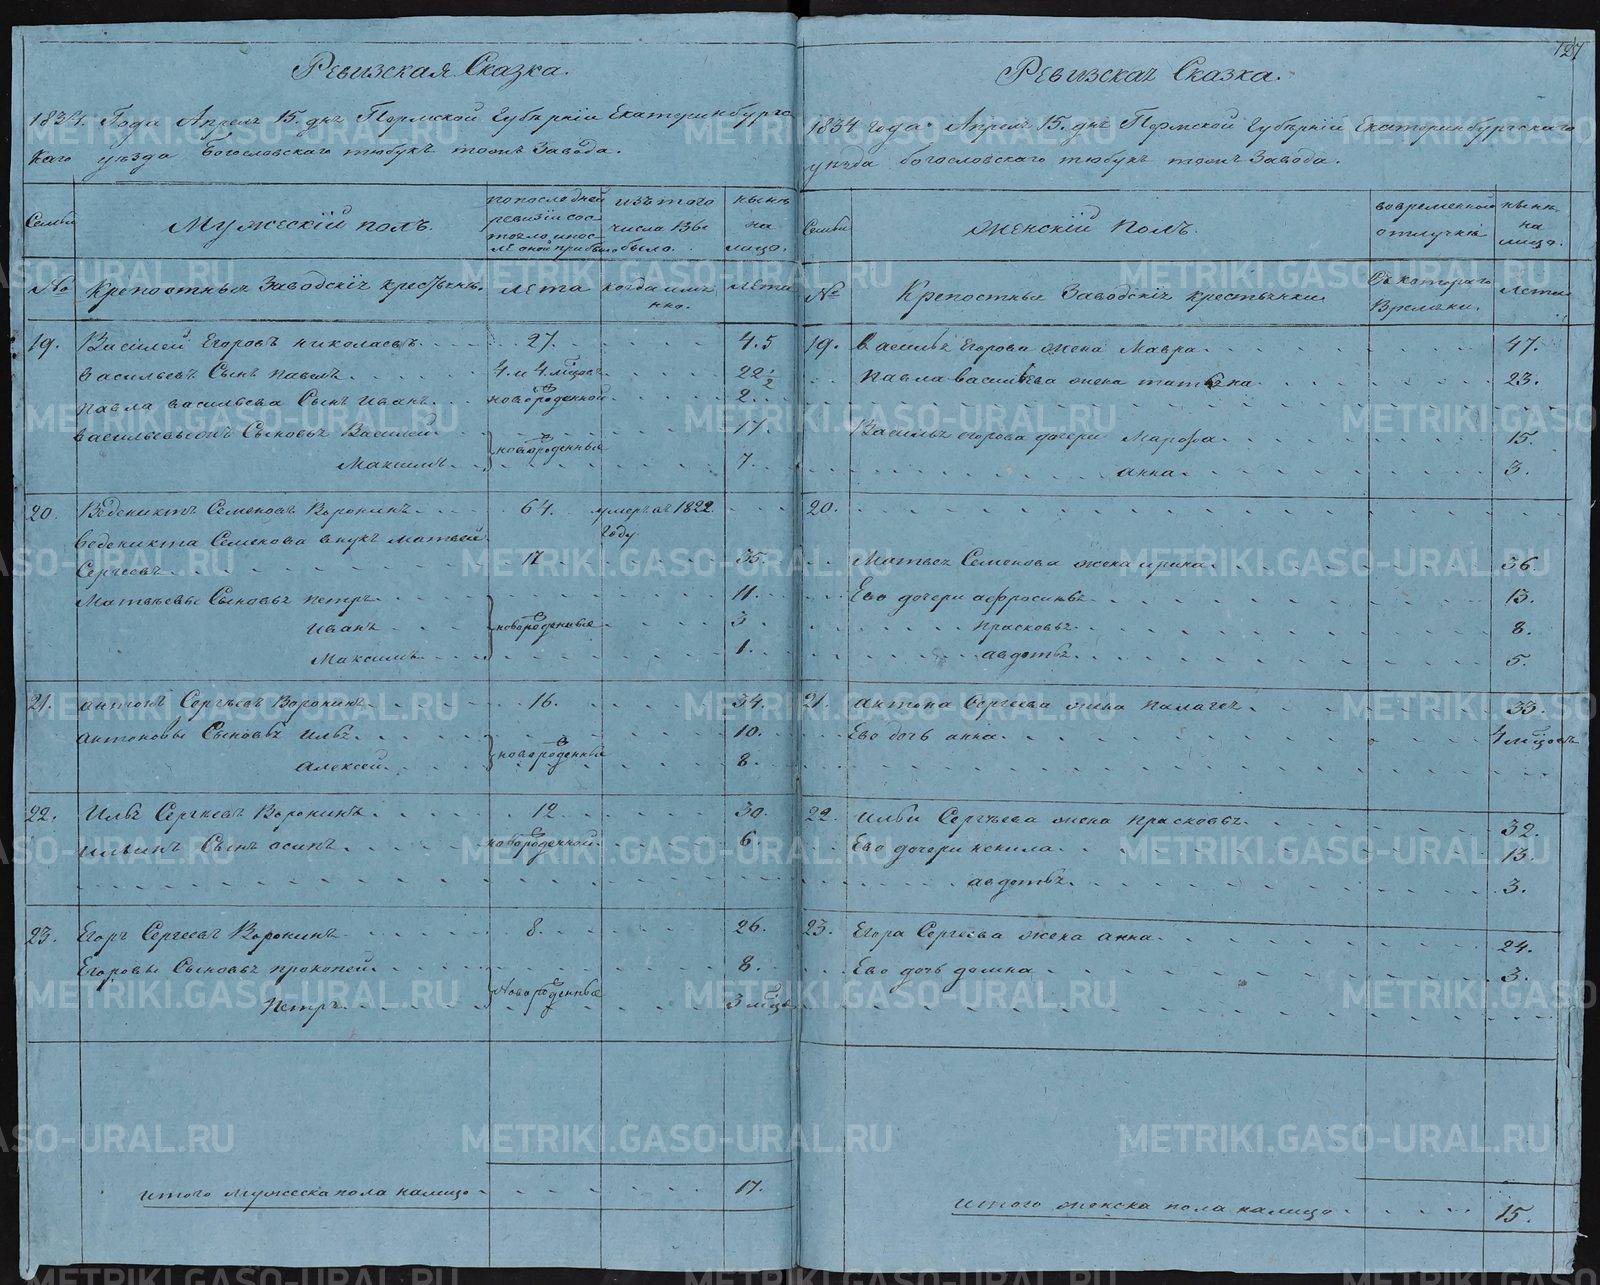 Ревизская Сказка.
1834. Года Апреля 15. дня Пермской Губерніи Екатеринбургс
каго уезда Богословскаго тюбукъ тожъ Завода.
Семьи
Мужескій полъ.
по последней ревизіи состояло, и после оной прибыло
изъ того числа выбыло.
ныне на лицо.
№
Крепостныя Заводскія крестьяня.
лета
когда имянно.
лета
19. Василей Егоровъ николаевъ 27. 45
Васильевъ Сынъ павелъ 4. и 4 мцовъ 22 1/2
павла васильева Сынъ Иванъ новорожденной 2.
васильевыжъ Сыновья Василей 17.
новорожденные
Максимъ 7.
20. Веденихтъ Семеновъ Воронинъ 64. умеръ въ 1822 году
веденихта Семенова внукъ матвей
Сергеевъ 17 35.
Матвеевы Сыновья петръ 11.
иванъ новорожденные 3
Максимъ 1.
21. антонъ Сергеевъ Воронинъ 16. 34.
антоновы Сыновья илья 10.
новорожденные
алексей 8.
22. Илья Сергеевъ Воронинъ 12 30.
ильинъ Сынъ осипъ новорожденной 6.
23. Егоръ Сергеевъ Воронинъ 8. 26.
Егоровы Сыновья прокопей 8.
Новорожденные
Петръ 3 мца
итого мужеска пола налицо 17.
127
Ревизская Сказка.
1834 года Апреля 15. дня Пермской Губерніи Екатеринбургскаго
уезда богословскаго тюбукъ тожъ Завода.
Семьи
Женскій полъ.
во временной отлучке
ныне на лицо.
№
Крепостныя Заводскія крестьянки
Съ котораго Времяни.
лета
19. василья Егорова жена Мавра 47.
павла васильева жена татьяна 23.
Василья егорова дочери Марфа 15.
анна 3.
20.
Матвея Семенова жена ирина 36.
Ево дочери афросинья 13.
прасковья 8.
авдотья 5.
21. антона Сергеева жена палагея 33.
Ево дочь анна 4 мцовъ
22. ильи Сергеева жена прасковья 32.
Ево дочери ненила 13.
авдотья 3.
23. Егора Сергеева жена анна 24.
Ево дочь домна 3.
итого женска пола налицо 15.
METRIKI.GASO-URAL.RU